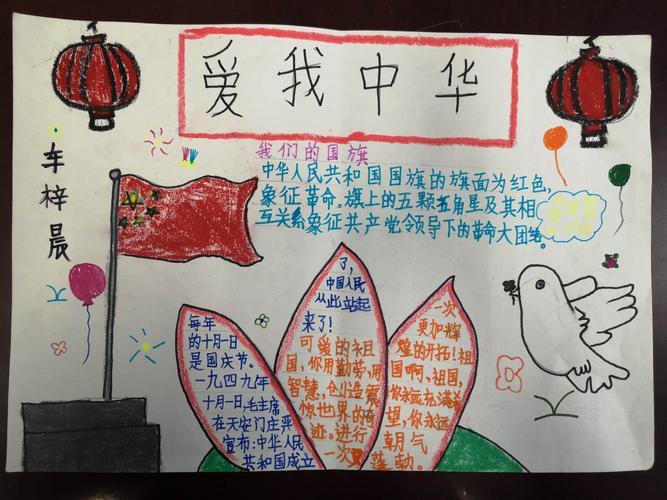 爱我中华
车梓晨
我们的国旗
中华人民共和国国旗的旗面为红色,
象征革命。旗上的五颗五角星及其相
互关系象征共产党领导下的革命大团结。
每年
的十月一日
是国庆节。
一九四九年
十月一日,毛主席
在天安门庄严
宣布:中华人民
共和国成立
了,
中国人民
从此站起
来了!
可爱的祖
国,你用勤劳,用
智慧,创造震
惊世界的奇
迹。进行
一次又
一次
更加辉
煌的开拓!祖
国啊,祖国,
你永远充满希
望,你永远
朝气
蓬勃。